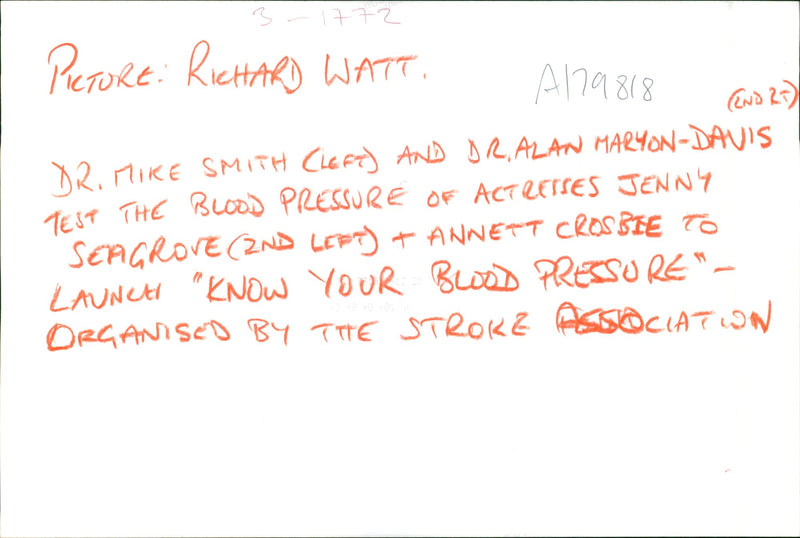 3-1772
PICTURE: RICHARD WATT.
A179818
(2ND RT)
DR. MIKE SMITH (LEFT) AND DR. ALAN MARYON-DAVIS
TEST THE BLOOD PRESSURE OF ACTRESSES JENNY
SEAGROVE (2ND LEFT) + ANNETT CROSBIE TO
LAUNCH "KNOW YOUR BLOOD PRESSURE" -
ORGANISED BY THE STROKE ASSOCIATION